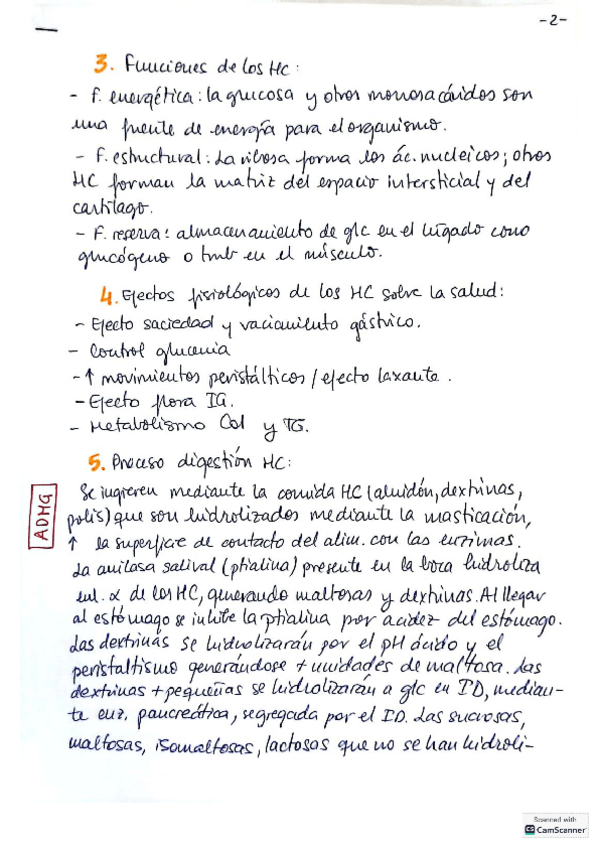 -2-
3. Funciones de los HC:
- F. energética: la glucosa y otros monosacáridos son
una fuente de energía para el organismo.
- F. estructural: La ribosa forma los ác. nucleicos; otros
HC forman la matriz del espacio intersticial y del
cartílago.
- F. reserva: almacenamiento de glc en el hígado como
glucógeno o tmb en el músculo.
4. Efectos fisiológicos de los HC sobre la salud:
- Efecto saciedad y vaciamiento gástrico.
- Control glucemia
- ↑ movimientos peristálticos / efecto laxante.
- Efecto flora IG.
- Metabolismo Col y TG.
5. Proceso digestión HC:
ADMG
Se ingieren mediante la comida HC (almidón, dextrinas,
polis) que son hidrolizados mediante la masticación,
↑ la superficie de contacto del alim. con las enzimas.
La amilasa salival (ptialina) presente en la boca hidroliza
enl. α de los HC, generando maltosas y dextrinas. Al llegar
al estómago se inhibe la ptialina por acidez del estómago.
Las dextrinas se hidrolizarán por el pH ácido y el
peristaltismo generándose + unidades de maltosa. Las
dextrinas + pequeñas se hidrolizarán a glc en ID, median-
te enz. pancreática, segregada por el ID. Las sucrosas,
maltosas, isomaltosas, lactosas que no se han hidroli-
Scanned with
CS CamScanner